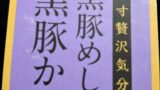 寸贅沢気分
黒豚めし
黒豚か